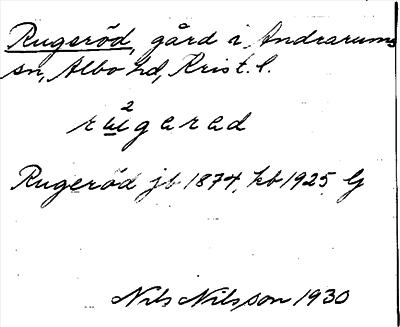 Rugeröd, gård i Andrarums
sn, Albo hd, Krist. l.
2
Rugeröd jb 1874, kb 1925 G
Nils Nilsson 1930